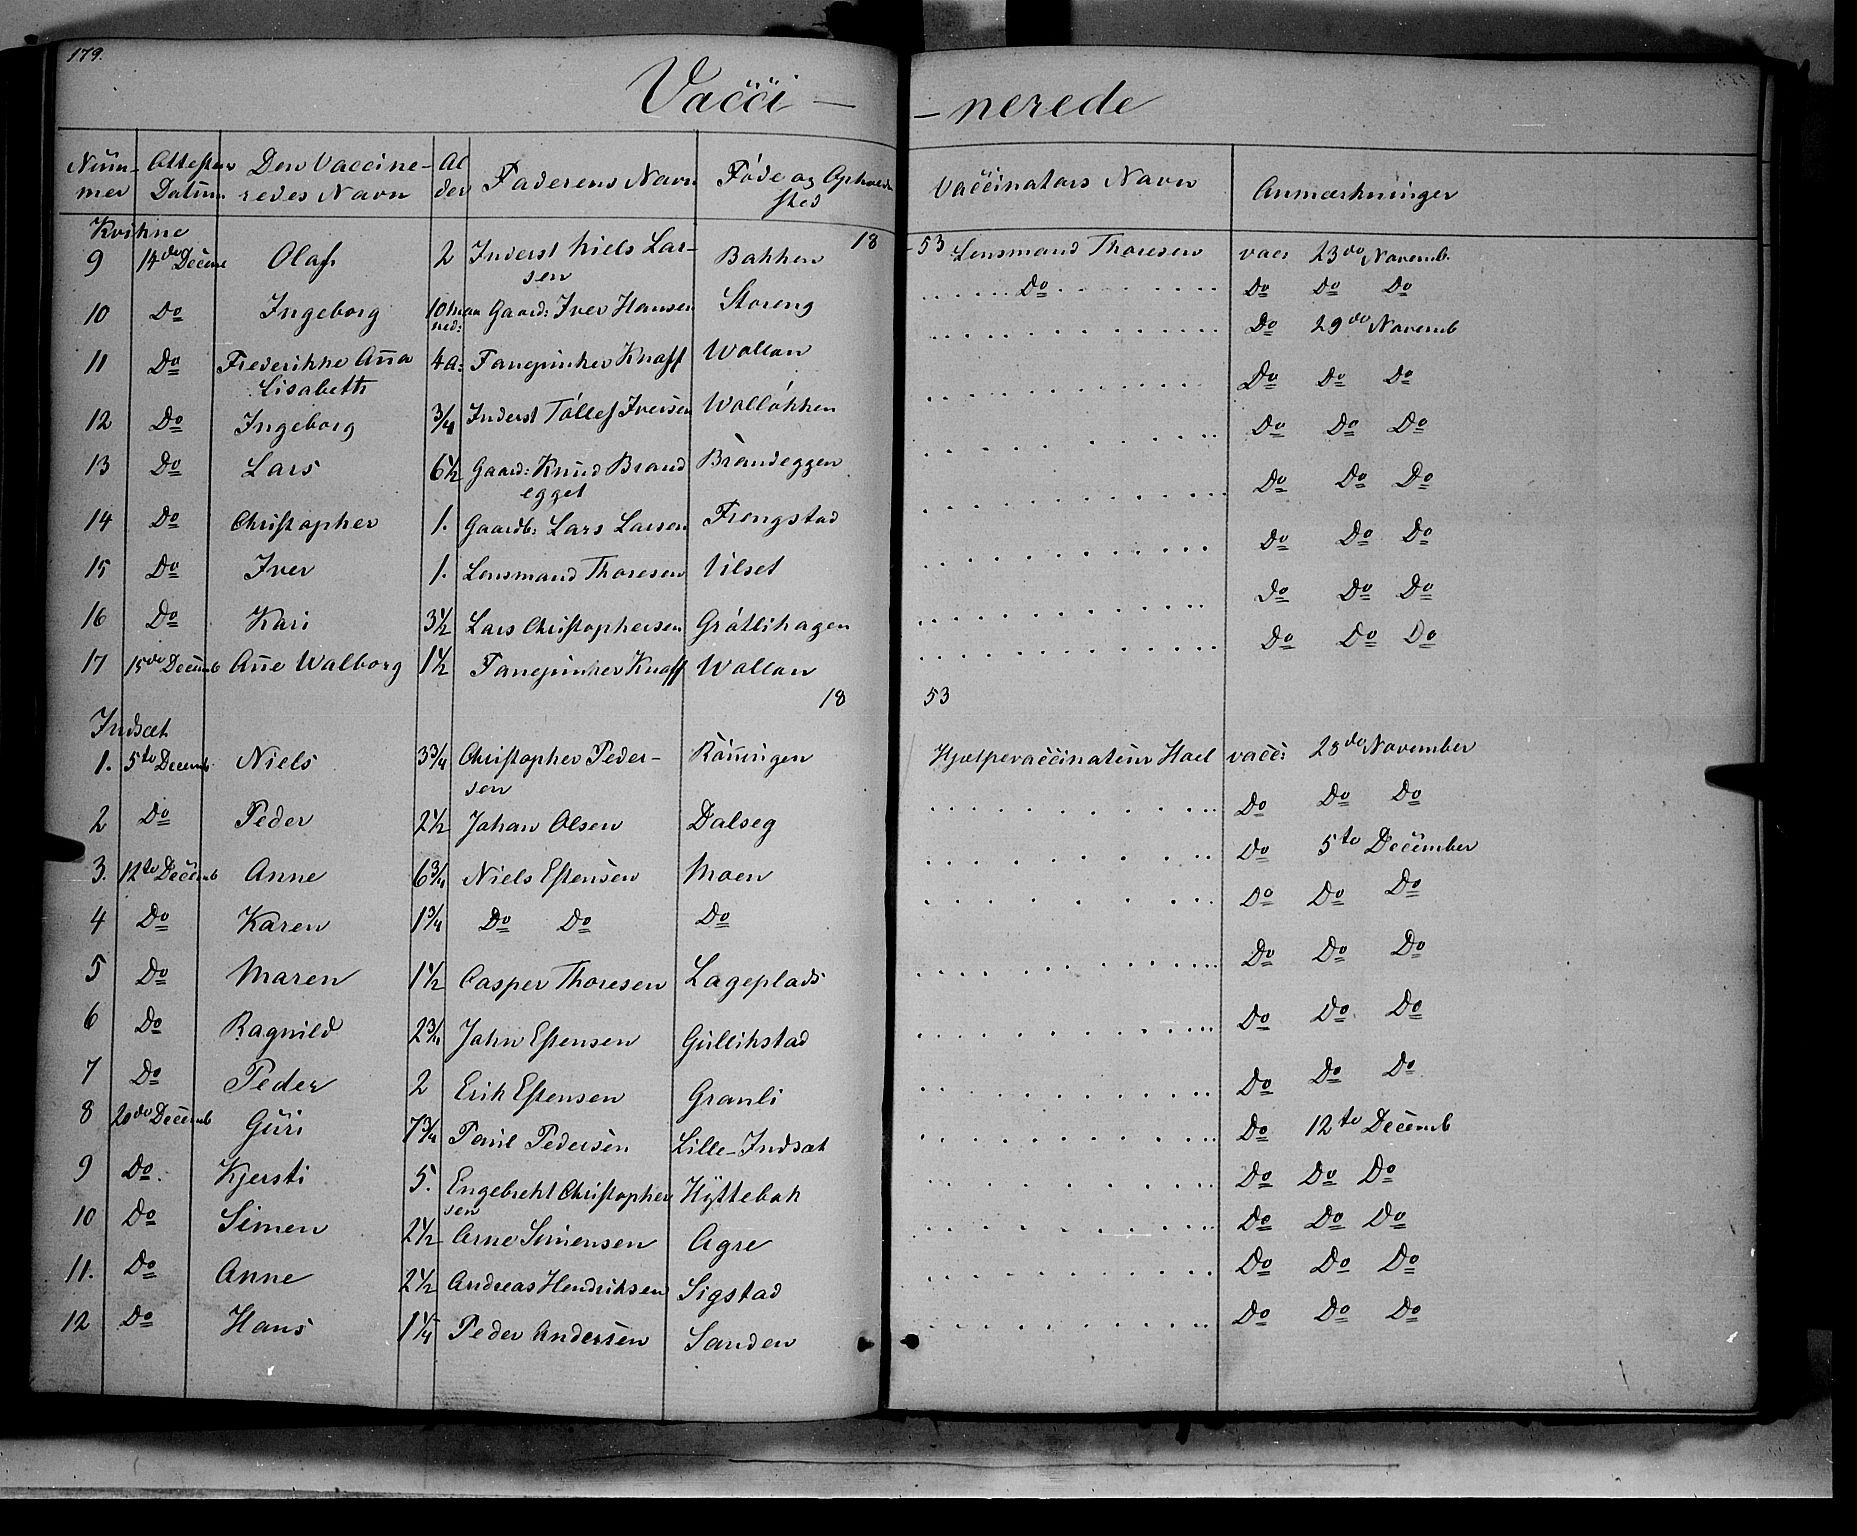 179.
Vacci - - nerede
Num- mer | Attestens Datum | Den Vaccine- redes Navn | Al der | Faderens Navn | Føde og Opholds sted | Vaccinators Navn | Anmærkninger
Kvikne 18 53
9 14de Decemb Olaf 2 Inderst Niels Lar- Bakken Lensmand Thoresen vacc 23de Novemb.
sen
10 Do Ingeborg 10 maa Gaard: Iver Hansen Storeng Do Do Do Do
ned:
11 Do Frederikke Anna 4 a: Fanejunker Knoff Wollan Do 29de Novemb
Lisabeth
12 Do Ingeborg 3/4 Inderst Tøllef Iversen Wolløkken Do Do Do
13 Do Lars 6 1/2 Gaard: Knud Brand Brandeggen Do Do Do
egget
14 Do Christopher 1. Gaardb: Lars Larsen Frengstad Do Do Do
15 Do Iver 1. Lensmand Thoresen Vilset Do Do Do
16 Do Kari 3 1/2 Lars Christophersen Grøtlihagen Do Do Do
17 15de Decemb Anne Walborg 1 1/2 Fanejunker Knoff Wollan Do Do Do
18 53
Indset
1. 5te Decemb Niels 3 3/4 Christopher Peder- Rønningen Hjælpevaccinateur Hoel vacc: 28de November
sen
2 Do Peder 2 1/2 Johan Olsen Dalseg Do Do Do
3. 12te Decemb Anne 6 3/4 Niels Estensen Moen Do 5te December
4 Do Karen 1 3/4 Do Do Do Do Do Do
5 Do Maren 1 1/2 Casper Thoresen Lageplads Do Do Do
6 Do Ragnild 2 3/4 John Estensen Gullikstad Do Do Do
7 Do Peder 2 Erik Estensen Granli Do Do Do
8 20de Decemb Guri 7 3/4 Paul Pedersen Lille-Indset Do 12te Decemb
9 Do. Kjersti 5. Engebreht Christopher Hyttebak Do Do Do
sen
10 Do Simen 2 1/2 Arne Simensen Agre Do Do Do
11. Do Anne 2 1/2 Andreas Hendriksen Sigstad Do Do Do
12 Do Hans 1 1/4 Peder Andersen Sanden Do Do Do